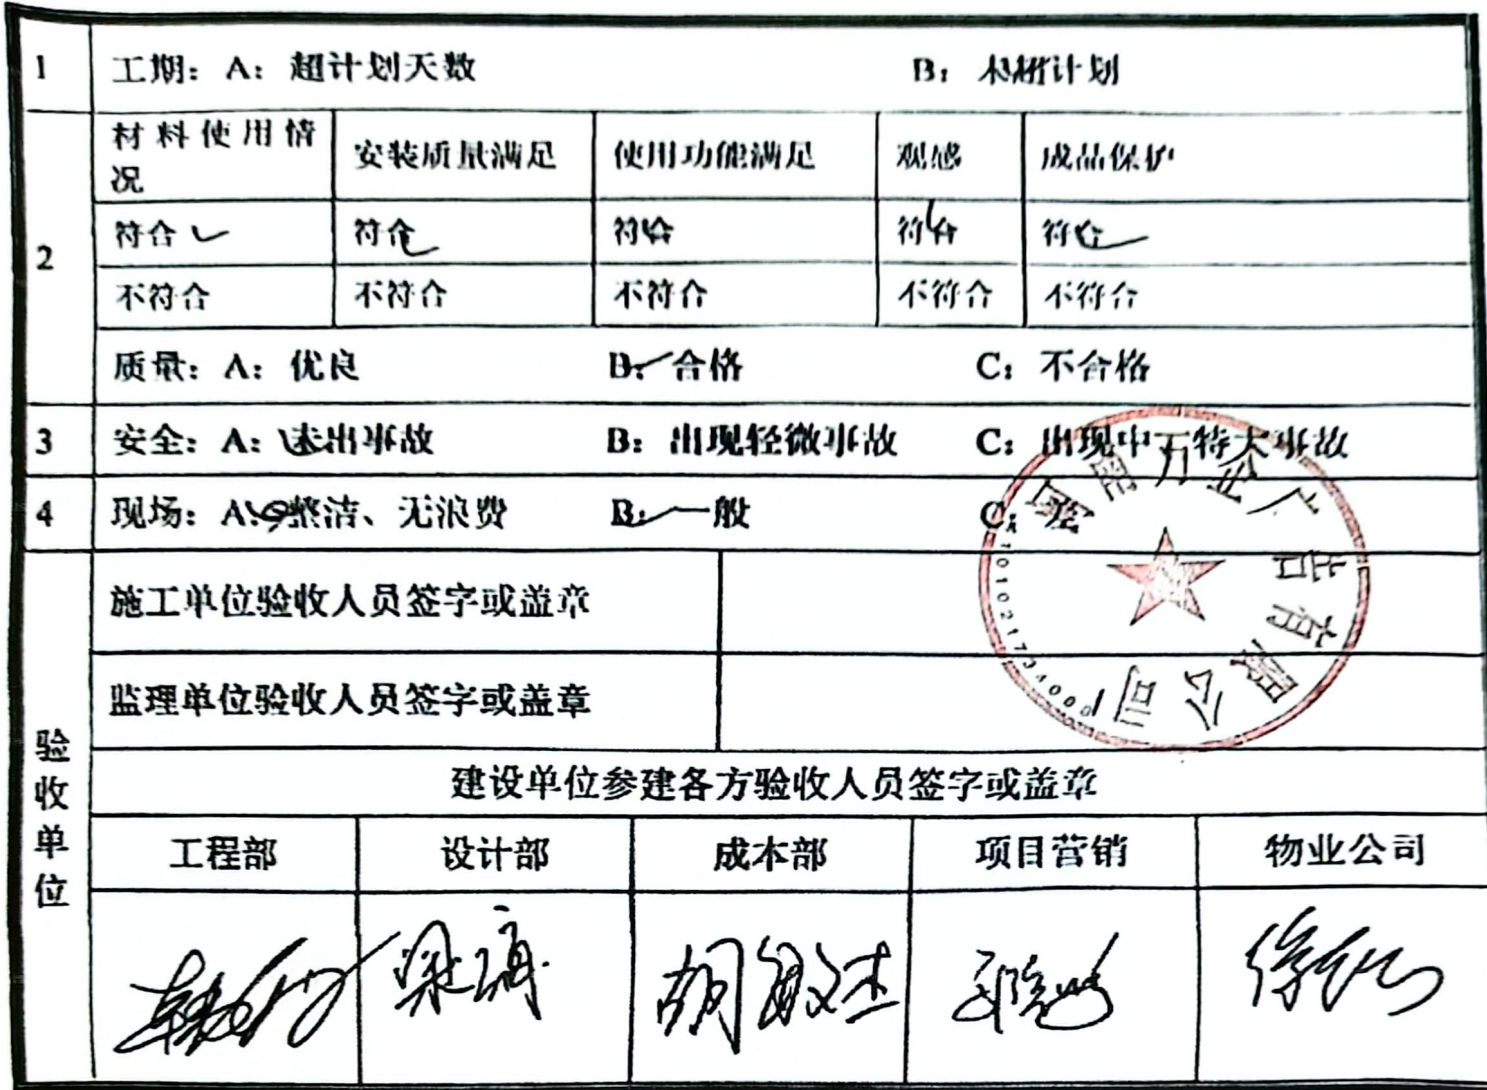 1 工期：A：超计划天数 B：未超计划
材料使用情况 安装质量满足 使用功能满足 观感 成品保护
2 符合 符合 符合 符合 符合
不符合 不符合 不符合 不符合 不符合
质量：A：优良 B：合格 C：不合格
3 安全：A：未出事故 B：出现轻微事故 C：出现中下特大事故
4 现场：A：整洁、无浪费 B：一般 C：差
施工单位验收人员签字或盖章
广告有限公司
监理单位验收人员签字或盖章
验收单位
建设单位参建各方验收人员签字或盖章
工程部 设计部 成本部 项目营销 物业公司
胡敏杰